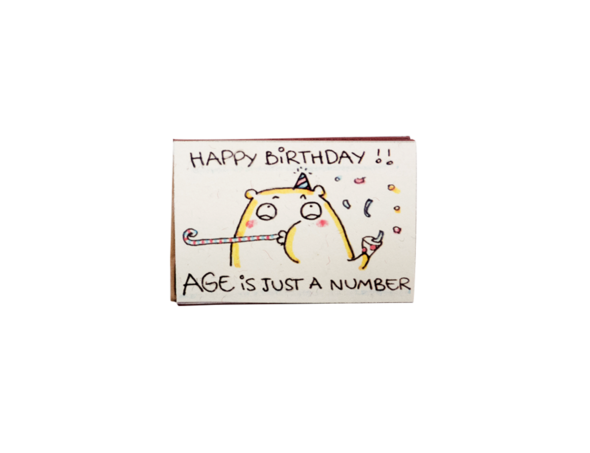 HAPPY BiRTHDAY !!
AGE iS JUST A NUMBER